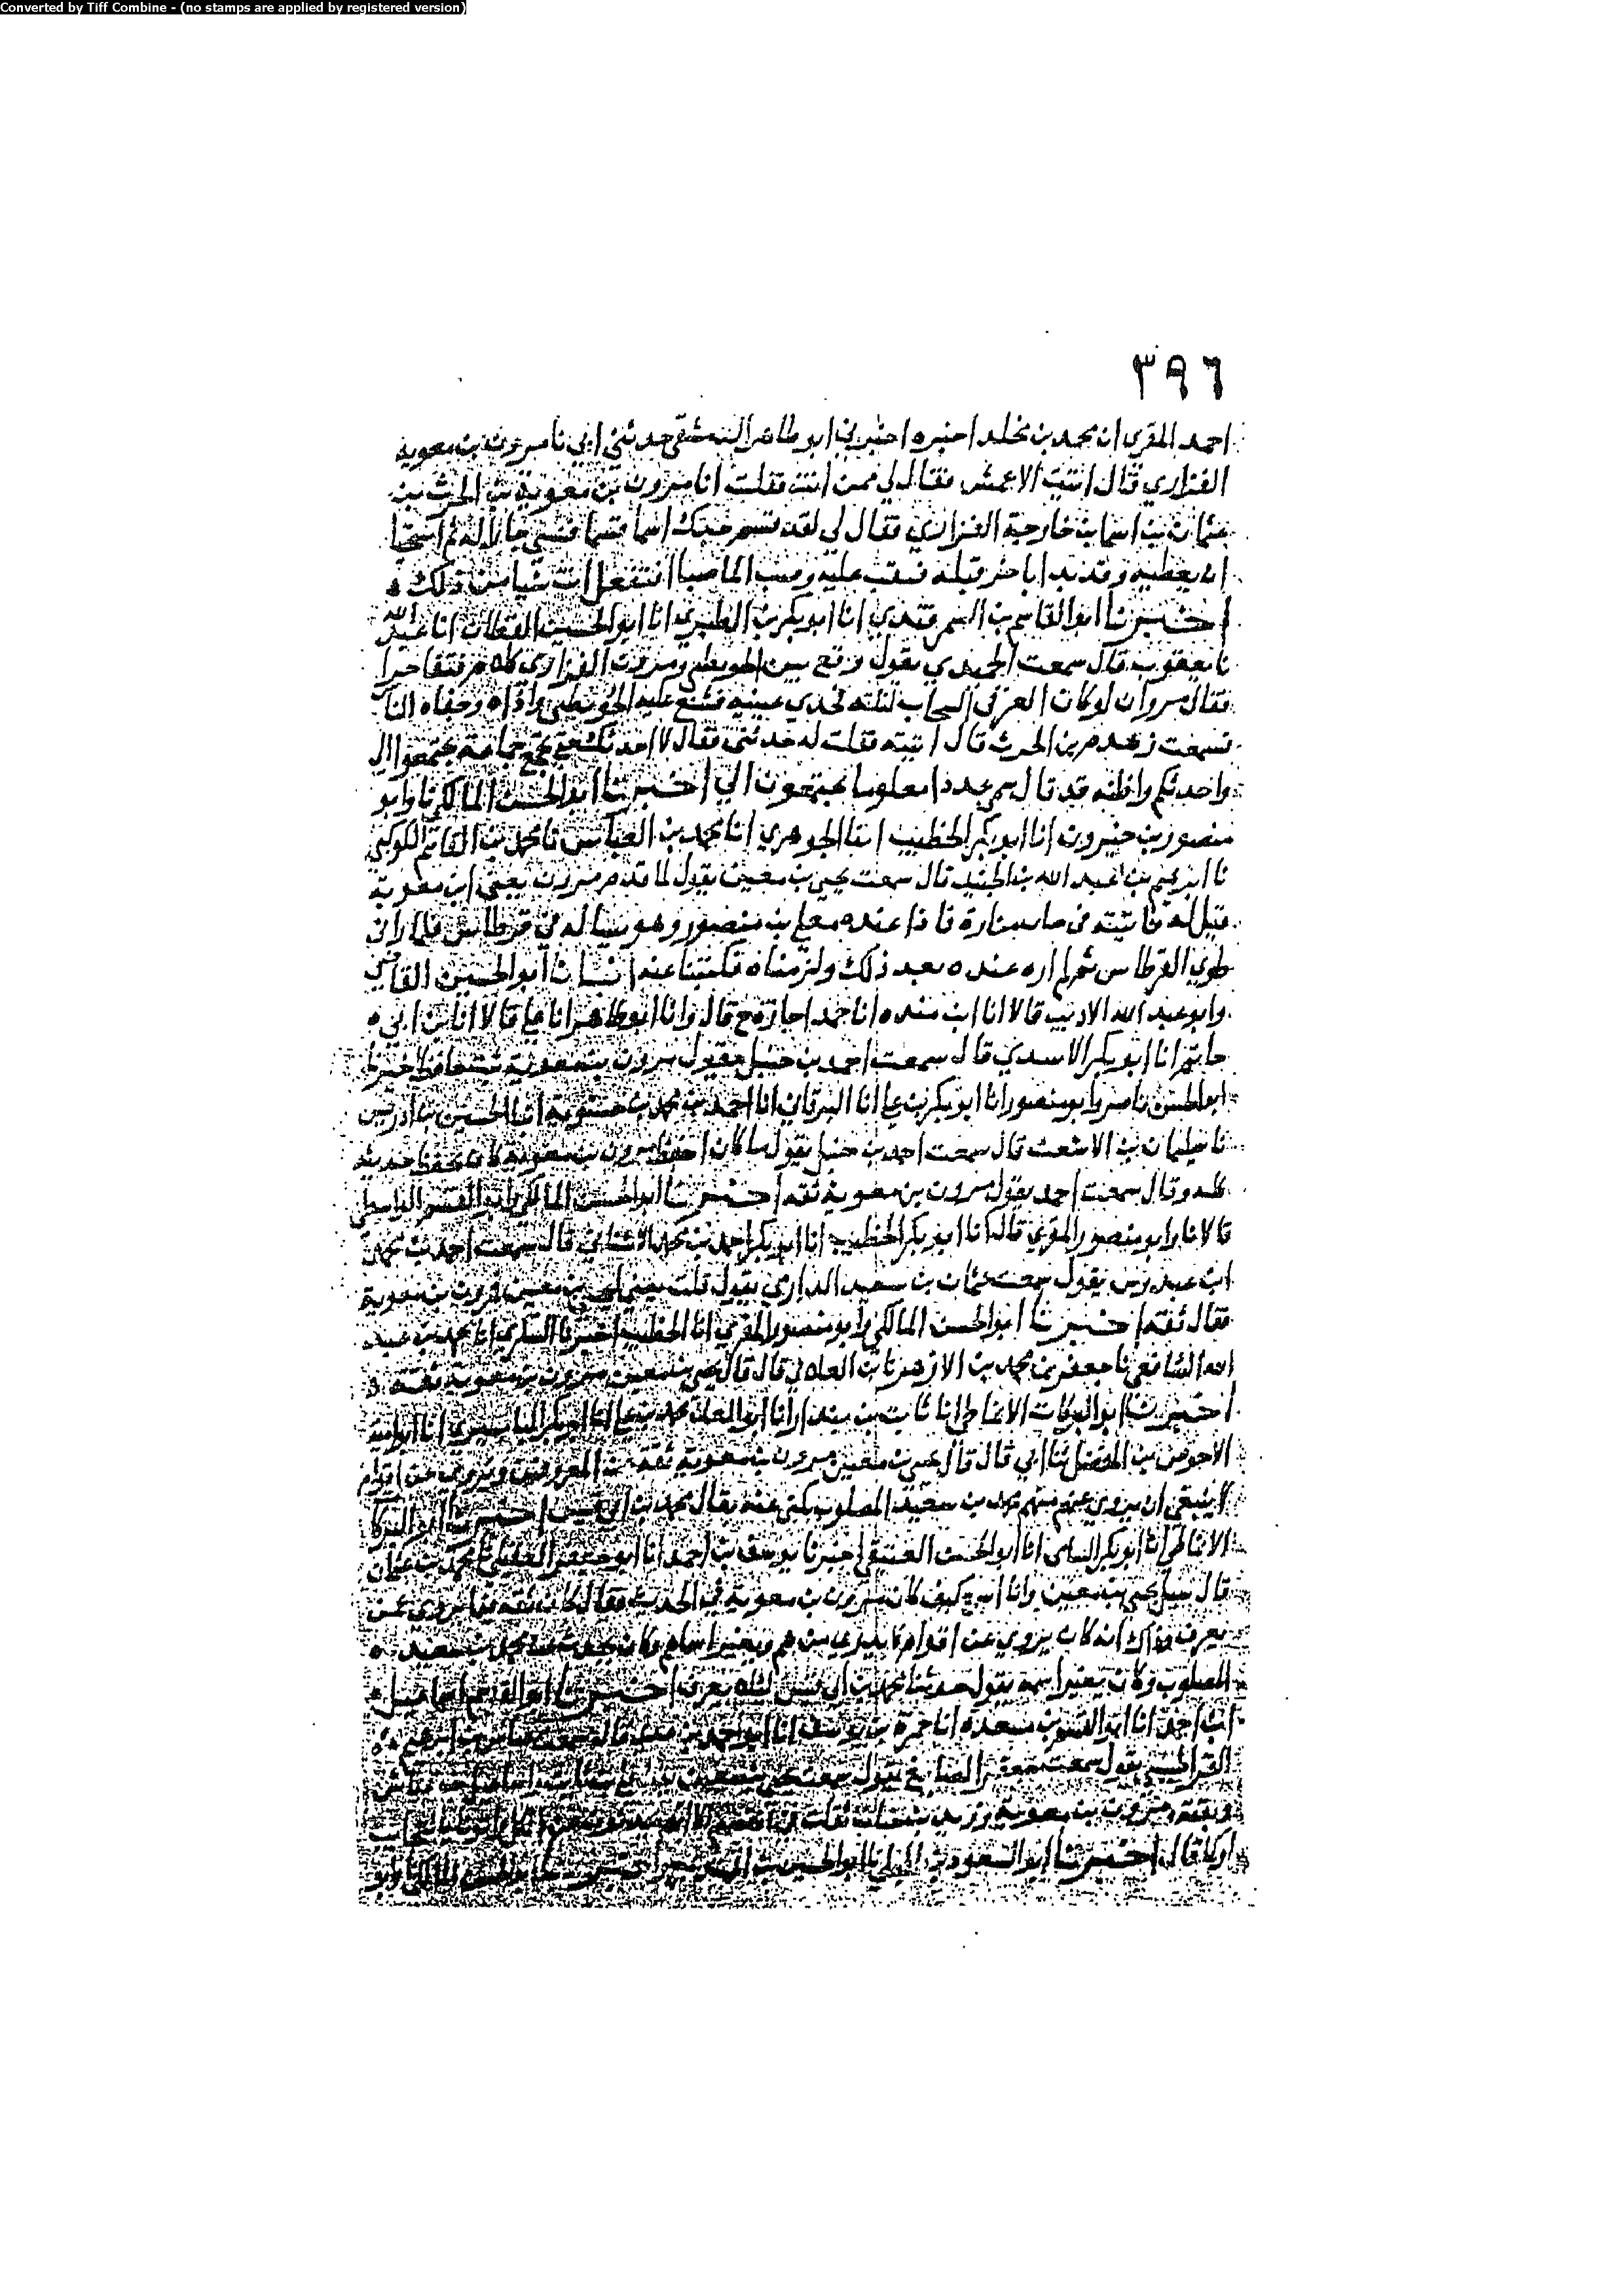 Converted by Tiff Combine - (no stamps are applied by registered version)
٣٩٦
احمد المقري ان محمد بن مخلد اخبره اخبرني ابو طاهر الدمشقي حدثني ابي نا مرون بن معوية
الفزاري قال اتيت الاعمش فقال لي ممن انت فقلت انا مرون بن معوية بن الحرث بن
عثمان بن اسما بن خارجة الفزاري فقال لي لقد قسم جدك اسما قسما فنسي جارا له ثم استحيا
ان يعطيه وقد بدا باخر قبله فبعث عليه وصب المال صبا افتفعل انت شيا من ذلك ه
اخبرنا ابو القاسم بن السمرقندي انا ابو بكر بن الطبري انا ابو الحسين القطان انا عبد الله
نا يعقوب قال سمعت الحميدي يقول وقع بين ومرون الفزاري كلام
فقال مروان لو كان العز في السحاب فشنع عليه واذاه وجفاه
قال اتيته فقلت له حدثني فقال لا احدثك حتى جماعة
واحدثكم واظنه قد قال سم عددا معلوما يجتمعون الي اخبرنا ابو الحسن المالكي نا وابو
منصور بن خيرون انا ابو بكر الخطيب انبا الجوهري انا محمد بن العباس نا محمد بن القاسم الكوكبي
نا ابرهيم بن عبد الله بن الجنيد قال سمعت يحيى بن معين يقول لما قدم مرون يعني ابن معوية
فاذا عنده معلى بن منصور وهو يساله في قرطاس فلما راني
طوي القرطاس ثم لم اره عنده بعد ذلك ولزمناه فكتبنا عنه انبانا ابو الحسين القاضي
وابو عبد الله الاديب قالا انا ابن منده انا حمد اجازة ح قال وانا ابو طاهر انا علي قالا انا ابن ابي ه
حاتم انا ابو بكر الاسدي قال سمعت احمد بن حنبل يقول مرون بن معوية ثبت حافظ اخبرنا
ابو الحسن نا وابو منصور انا ابو بكر بن علي انا البرقاني انا احمد بن محمد بن حسنويه انا الحسين بن ادريس
نا سليمان بن الاشعث قال سمعت احمد بن حنبل يقول ما كان احفظ مرون بن معوية كان يحفظ حديثه
كله وقال سمعت احمد يقول مرون بن معوية ثقة اخبرنا ابو الحسن المالكي وابو القسم الواسطي
قالا نا وابو منصور المقري قال انا ابو بكر الخطيب انا ابو بكر احمد بن محمد الاشناني قال سمعت احمد بن محمد
ابن عبدوس يقول سمعت عثمان بن سعيد الدارمي يقول قلت يعني ليحيى بن معين فمرون بن معوية
فقال ثقة اخبرنا ابو الحسن المالكي وابو منصور المقري انا الخطيب اخبرنا السكري انا محمد بن عبد
الله الشافعي نا جعفر بن محمد بن الازهر نا ابن الغلابي قال قال يحيى بن معين مرون بن معوية ثقة ه
اخبرنا ابو البركات الانماطي انا ثابت بن بندار انا ابو العلا محمد بن علي انا ابو بكر البابسيري انا ابو امية
الاحوص بن المفضل نا ابي قال قال يحيى بن معين مرون بن معوية ثقة عن المعروفين ويروي عن اقوام
لا ينبغي ان يروي عنهم منهم محمد بن سعيد المصلوب كنى عنه يقال محمد بن ابي قيس اخبرنا ابو البركات
الانماطي انا ابو بكر الشامي انا ابو الحسن العتيقي اخبرنا يوسف بن احمد انا ابو جعفر العقيلي نا محمد بن عثمان
قال سيل يحيى بن معين وانا اسمع كيف كان مرون بن معوية في الحديث فقال كان ثقة فيما يروي عمن
يعرف وذاك انه كان يروي عن اقوام لا يدري من هم ويغير اسماهم وكان يحدث عن محمد بن سعيد ه
المصلوب وكان يغير اسمه يقول حدثنا محمد بن ابي قيس ليلا يعرف اخبرنا ابو القاسم اسماعيل
ابن احمد انا ابو القسم بن مسعدة انا حمزة بن يوسف انا ابو احمد بن عدي قال سمعت بن ابرهيم ه
القراطيسي يقول سمعت جعفر الصايغ يقول سمعت يحيى بن معين
وبقية ومرون بن معوية وزيد
او كما قال اخبرنا ابو السعود بن المجلي نا ابو الحسين بن المهتدي ح اخبرنا ابو الحسن المالكي وابو